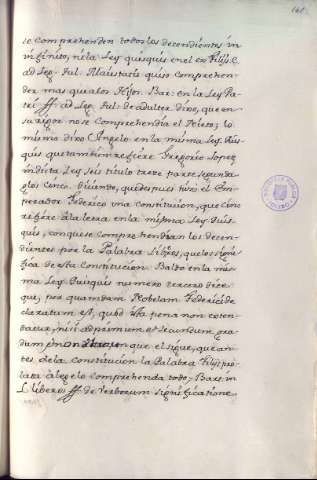 se comprehenden todos los decendientes in
infinito, ni la Ley quisquis en el ex filijs. C.
ad Leg. Jul. Maiestatis quiso comprehen
der mas que a los Hijos. Bar. en la Ley Pa
tri ff. ad Leg. Jul. de adulter. dixo, que en
su rigor no se comprehendia el Nieto; lo
mismo dixo Angelo en la misma Ley Quis
quis que tambien refiere Gregorio Lopez
in dicta Ley seis titulo trece partesegunda
glos. diciendo, que despues hizo el Em
perador Federico una constitucion, que
refiere a la letra en la misma Ley Quis
quis, con que se comprehendian los decen
dientes por la Palabra liberos, que
de esta Constitucion. Baldo en la mis
ma Ley Quisquis numero trecero dice
que, por quamdam Nobelam Federici de
claratum est, quod ista pena non exten
datur, nisi ad primum et secundum gra
dum, en que el sigue, que an
tes de la constitucion la Palabra filijs pro
lata a lege lo comprehenda todo, Bart. in
L. liberos ff. de verborum significatione